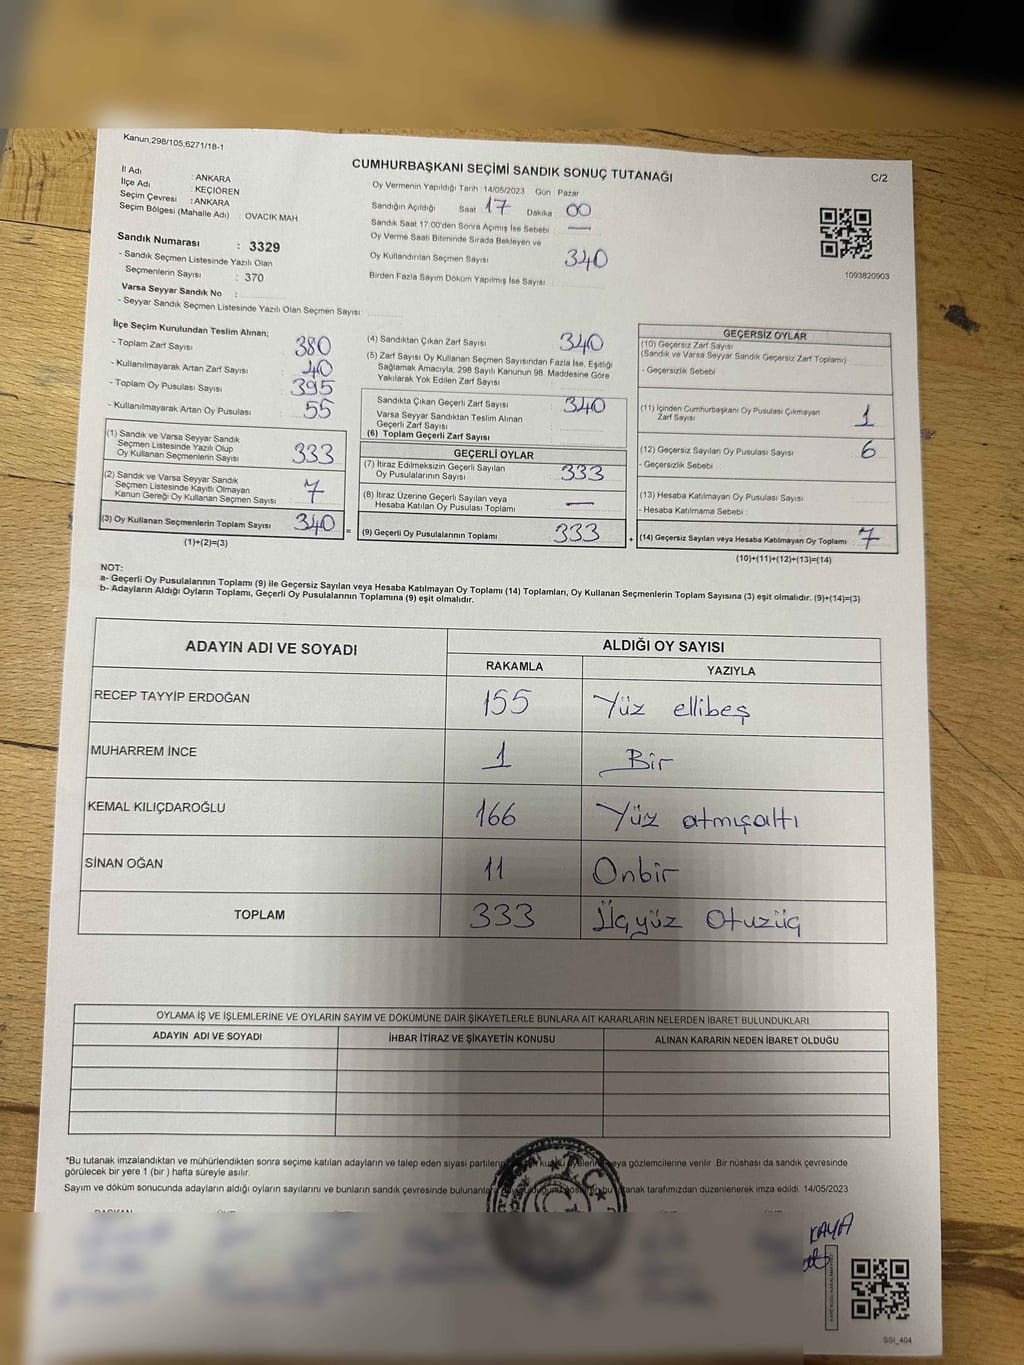 Kanun;298/105,6271/18-1
CUMHURBAŞKANI SEÇİMİ SANDIK SONUÇ TUTANAĞI
C/2
İl Adı : ANKARA
İlçe Adı : KEÇİÖREN
Seçim Çevresi : ANKARA
Seçim Bölgesi (Mahalle Adı) : OVACIK MAH
Sandık Numarası : 3329
- Sandık Seçmen Listesinde Yazılı Olan
Seçmenlerin Sayısı : 370
Varsa Seyyar Sandık No :
- Seyyar Sandık Seçmen Listesinde Yazılı Olan Seçmen Sayısı:
Oy Vermenin Yapıldığı Tarih : 14/05/2023 Gün : Pazar
Sandığın Açıldığı Saat : 17 Dakika : 00
Sandık Saat 17:00'den Sonra Açımış İse Sebebi : —
Oy Verme Saati Bitiminde Sırada Bekleyen ve
Oy Kullandırılan Seçmen Sayısı : 340
Birden Fazla Sayım Döküm Yapılmış İse Sayısı :
1093820903
İlçe Seçim Kurulundan Teslim Alınan;
- Toplam Zarf Sayısı : 380
- Kullanılmayarak Artan Zarf Sayısı : 40
- Toplam Oy Pusulası Sayısı : 395
- Kullanılmayarak Artan Oy Pusulası : 55
(1) Sandık ve Varsa Seyyar Sandık
Seçmen Listesinde Yazılı Olup
Oy Kullanan Seçmenlerin Sayısı : 333
(2) Sandık ve Varsa Seyyar Sandık
Seçmen Listesinde Kayıtlı Olmayan
Kanun Gereği Oy Kullanan Seçmen Sayısı : 7
(3) Oy Kullanan Seçmenlerin Toplam Sayısı : 340 =
(1)+(2)=(3)
(4) Sandıktan Çıkan Zarf Sayısı : 340
(5) Zarf Sayısı Oy Kullanan Seçmen Sayısından Fazla İse, Eşitliği
Sağlamak Amacıyla, 298 Sayılı Kanunun 98. Maddesine Göre
Yakılarak Yok Edilen Zarf Sayısı :
Sandıkta Çıkan Geçerli Zarf Sayısı : 340
Varsa Seyyar Sandıktan Teslim Alınan
Geçerli Zarf Sayısı :
(6) Toplam Geçerli Zarf Sayısı
GEÇERLİ OYLAR
(7) İtiraz Edilmeksizin Geçerli Sayılan
Oy Pusulalarının Sayısı : 333
(8) İtiraz Üzerine Geçerli Sayılan veya
Hesaba Katılan Oy Pusulası Toplamı : —
(9) Geçerli Oy Pusulalarının Toplamı : 333 +
GEÇERSİZ OYLAR
(10) Geçersiz Zarf Sayısı
(Sandık ve Varsa Seyyar Sandık Geçersiz Zarf Toplamı)
- Geçersizlik Sebebi :
(11) İçinden Cumhurbaşkanı Oy Pusulası Çıkmayan
Zarf Sayısı : 1
(12) Geçersiz Sayılan Oy Pusulası Sayısı : 6
- Geçersizlik Sebebi :
(13) Hesaba Katılmayan Oy Pusulası Sayısı :
- Hesaba Katılmama Sebebi :
(14) Geçersiz Sayılan veya Hesaba Katılmayan Oy Toplamı : 7
(10)+(11)+(12)+(13)=(14)
NOT:
a- Geçerli Oy Pusulalarının Toplamı (9) ile Geçersiz Sayılan veya Hesaba Katılmayan Oy Toplamı (14) Toplamları, Oy Kullanan Seçmenlerin Toplam Sayısına (3) eşit olmalıdır. (9)+(14)=(3)
b- Adayların Aldığı Oyların Toplamı, Geçerli Oy Pusulalarının Toplamına (9) eşit olmalıdır.
ADAYIN ADI VE SOYADI
ALDIĞI OY SAYISI
RAKAMLA YAZIYLA
RECEP TAYYİP ERDOĞAN 155 Yüz ellibeş
MUHARREM İNCE 1 Bir
KEMAL KILIÇDAROĞLU 166 Yüz atmışaltı
SİNAN OĞAN 11 Onbir
TOPLAM 333 Üçyüz Otuzüç
OYLAMA İŞ VE İŞLEMLERİNE VE OYLARIN SAYIM VE DÖKÜMÜNE DAİR ŞİKAYETLERLE BUNLARA AİT KARARLARIN NELERDEN İBARET BULUNDUKLARI
ADAYIN ADI VE SOYADI İHBAR İTİRAZ VE ŞİKAYETİN KONUSU ALINAN KARARIN NEDEN İBARET OLDUĞU
*Bu tutanak imzalandıktan ve mühürlendikten sonra seçime katılan adayların ve talep eden siyasi gözlemcilerine verilir. Bir nüshası da sandık çevresinde
görülecek bir yere 1 (bir ) hafta süreyle asılır.
Sayım ve döküm sonucunda adayların aldığı oyların sayılarını ve bunların sandık çevresinde tarafımızdan düzenlenerek imza edildi. 14/05/2023
KAYA
SSI_404